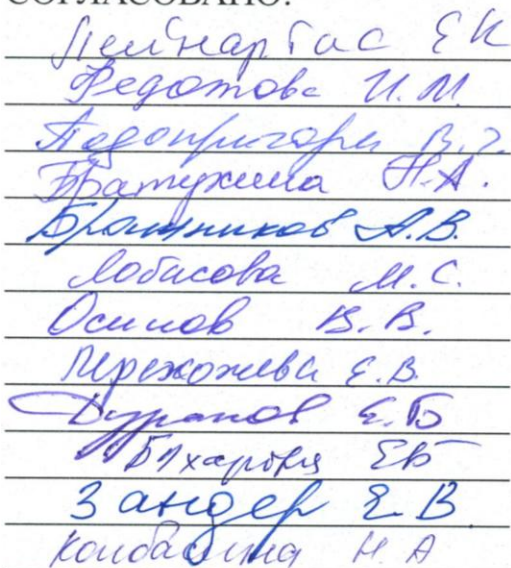 СОГЛАСОВАНО:
Федотова И.М.
Подопригора В.
Братухина Н.А.
Братников А.В.
Лобасова М.С.
Осипов В.В.
Перехожева Е.В.
Дуранов Е.Б
Бухарова ЕБ
Зандер Е.В
Колбасина Н А